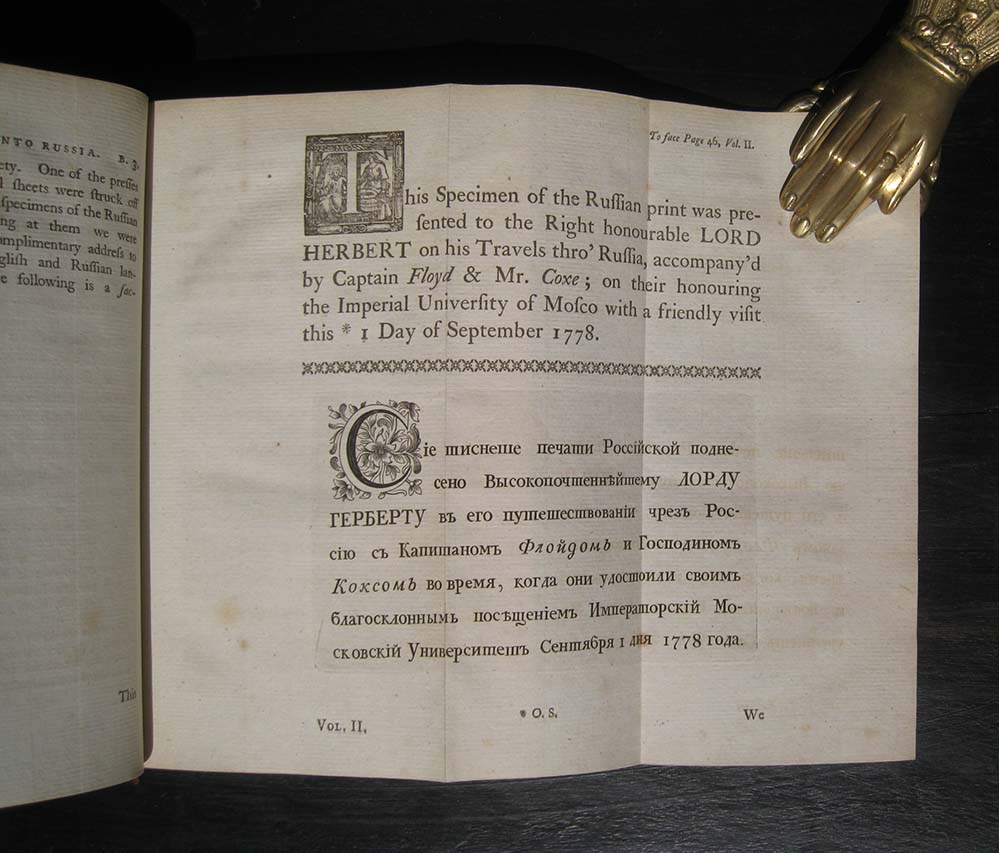 NTO RUSSIA. B. 3.
ety. One of the presses
l sheets were struck off
specimens of the Russian
ng at them we were
omplimentary address to
glish and Russian lan-
e following is a fac-
This
To face Page 46, Vol. II.
This Specimen of the Ruſſian print was pre-
ſented to the Right honourable LORD
HERBERT on his Travels thro' Ruſſia, accompany'd
by Captain Floyd & Mr. Coxe; on their honouring
the Imperial Univerſity of Moſco with a friendly viſit
this * 1 Day of September 1778.
Сіе тиснеше печати Россійской подне-
сено Высокопочтеннѣйшему ЛОРДУ
ГЕРБЕРТУ въ его путешествованіи чрезъ Рос-
сію съ Капитаномъ Флойдомъ и Господиномъ
Коксомъ во время, когда они удостоили своимъ
благосклоннымъ посѣщеніемъ Императорскій Мо-
сковскій Университетъ Сентября 1 дня 1778 года.
VOL. II.
* O. S.
We